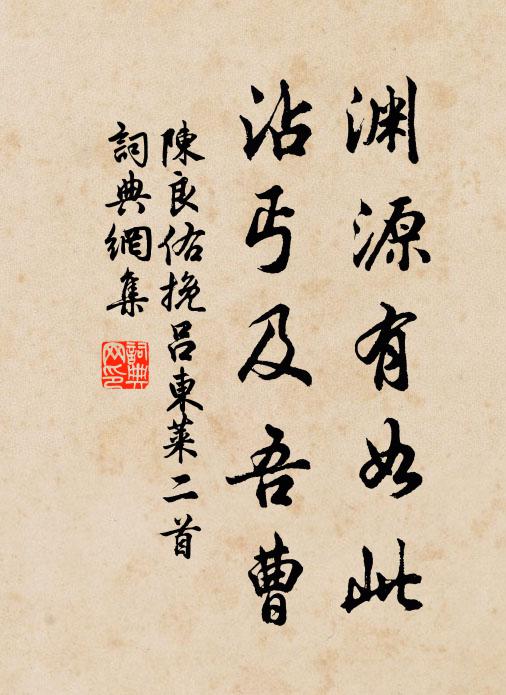 渊源有如此
沾丐及吾曹
陳良佑挽吕東萊二首
詞典網集
詞典網印